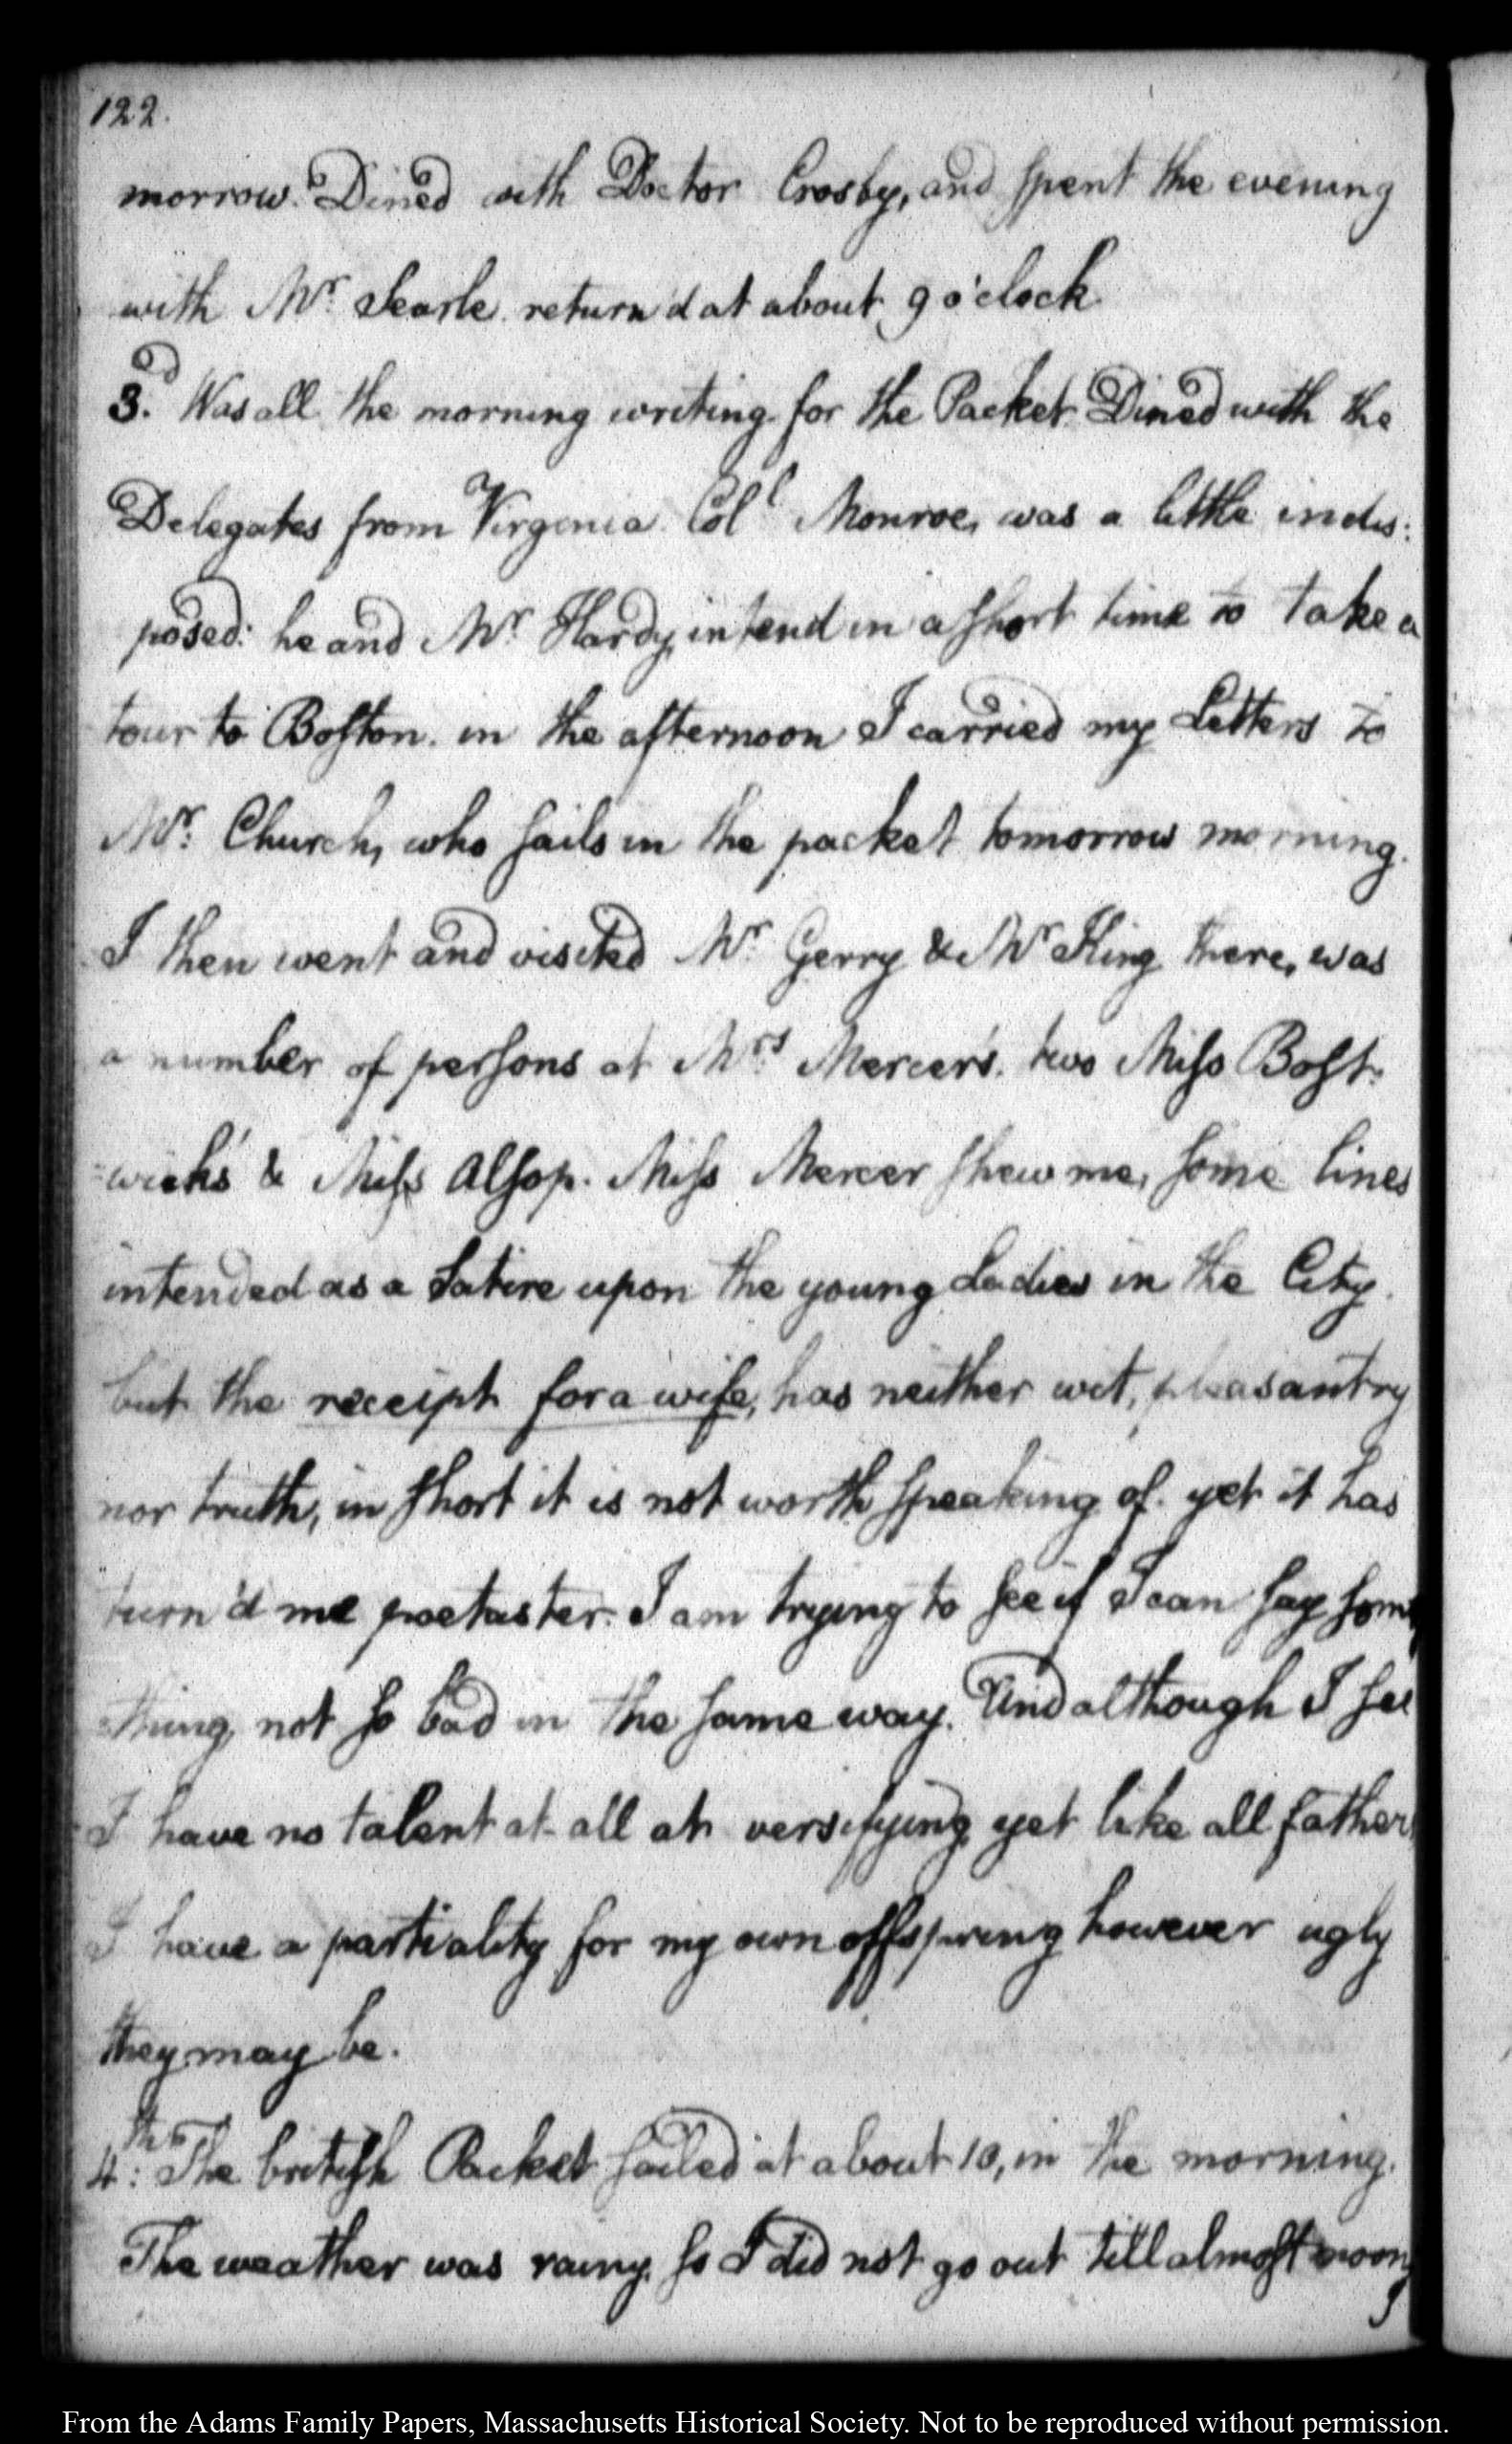 122.
morrow. Dined with Doctor Crosby, and spent the evening
with Mr. Searle. return'd at about 9 o'clock
3.d Was all the morning writing for the Packet. Dined with the
Delegates from Virginia. Coll Monroe, was a little indis:
posed: he and Mr. Hardy, intend in a short time to take a
tour to Boston. in the afternoon I carried my Letters to
Mr. Church, who sails in the packet tomorrow morning.
I then went and visited Mr. Gerry & Mr King there, was
a number of persons at Mrs. Mercer's. two Miss Bost-
-wick's & Miss Alsop. Miss Mercer shew me, some lines
intended as a Satire upon the young Ladies in the City.
but the receipt for a wife, has neither wit, pleasantry
nor truth, in short it is not worth speaking of. yet it has
turn'd me poetaster. I am trying to see if I can say some
thing, not so bad in the same way. And although I see
I have no talent at all at versifying, yet like all fathers
I have a partiality for my own offspring however ugly
they may be.
4:th The british Packet sailed at about 10, in the morning.
The weather was rainy, so I did not go out till almost noon,
From the Adams Family Papers, Massachusetts Historical Society. Not to be reproduced without permission.